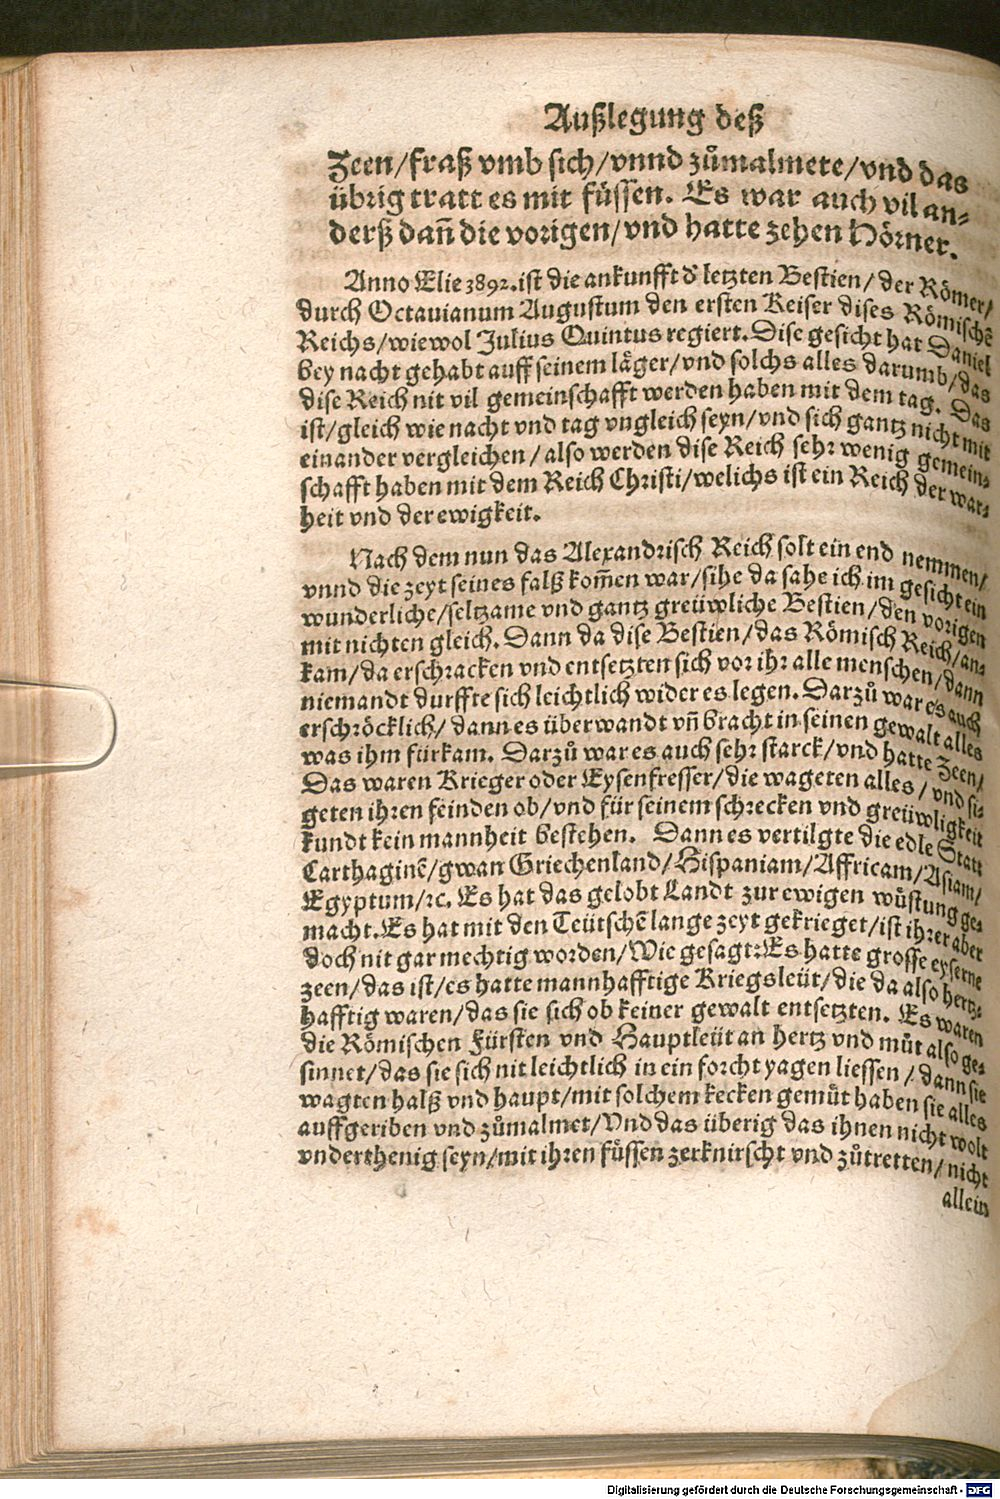 Außlegung deß
Zeen/fraß vmb sich/vnnd zůmalmete/vnd das
übrig tratt es mit füssen. Es war auch vil an-
derß dañ die vorigen/vnd hatte zehen Hörner.
Anno Elie 3892. ist die ankunfft d' letzten Bestien/der Römer/
durch Octauianum Augustum den ersten Keiser dises Römischē
Reichs/wiewol Julius Quintus regiert. Dise gesicht hat Daniel
bey nacht gehabt auff seinem läger/vnd solchs alles darumb/das
dise Reich nit vil gemeinschafft werden haben mit dem tag. Das
ist/gleich wie nacht vnd tag vngleich seyn/vnd sich gantz nicht mit
einander vergleichen/also werden dise Reich sehr wenig gemein-
schafft haben mit dem Reich Christi/welichs ist ein Reich der war-
heit vnd der ewigkeit.
Nach dem nun das Alexandrisch Reich solt ein end nemmen/
vnnd die zeyt seines falß kom̄en war/sihe da sahe ich im gesicht ein
wunderliche/seltzame vnd gantz greüwliche Bestien/den vorigen
mit nichten gleich. Dann da dise Bestien/das Römisch Reich/an-
kam/da erschracken vnd entsetzten sich vor ihr alle menschen/dann
niemandt durffte sich leichtlich wider es legen. Darzů war es auch
erschröcklich/dann es überwandt vñ bracht in seinen gewalt alles
was ihm fürkam. Darzů war es auch sehr starck/vnd hatte Zeen/
Das waren Krieger oder Eysenfresser/die wageten alles/vnd si-
geten ihren feinden ob/vnd für seinem schrecken vnd greüwligkeit
kundt kein mannheit bestehen. Dann es vertilgte die edle Statt
Carthaginē/gwan Griechenland/Hispaniam/Affricam/Asiam/
Egyptum/ꝛc. Es hat das gelobt Landt zur ewigen wüstung ge-
macht. Es hat mit den Teütschē lange zeyt gekrieget/ist ihrer aber
doch nit gar mechtig worden/Wie gesagt: Es hatte grosse eyserne
zeen/das ist/es hatte mannhafftige Kriegsleüt/die da also hertz-
hafftig waren/das sie sich ob keiner gewalt entsetzten. Es waren
die Römischen Fürsten vnd Hauptleüt an hertz vnd můt also ge-
sinnet/das sie sich nit leichtlich in ein forcht yagen liessen/dann sie
wagten halß vnd haupt/mit solchem kecken gemüt haben sie alles
auffgeriben vnd zůmalmet/Vnd das überig das ihnen nicht wolt
vnderthenig seyn/mit ihren füssen zerknirscht vnd zůtretten/nicht
allein
Digitalisierung gefördert durch die Deutsche Forschungsgemeinschaft - DFG